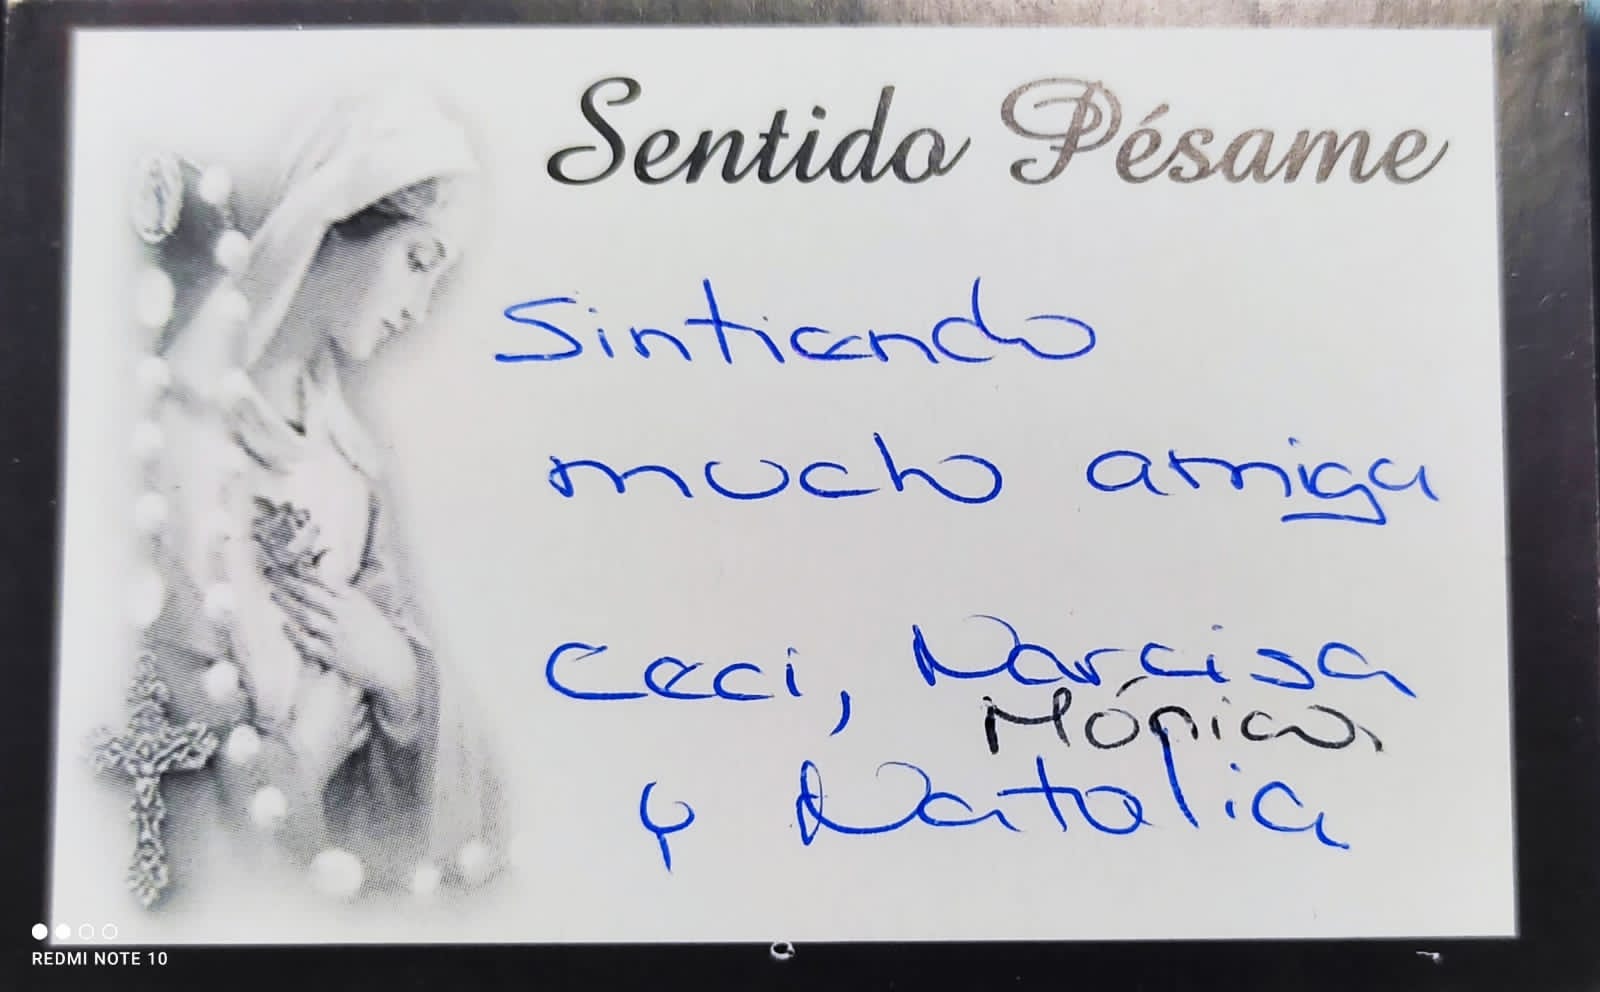 Sentido Pésame
Sintiendo
mucho amiga
Ceci, Narcisa
Mónica
y Natalia
REDMI NOTE 10